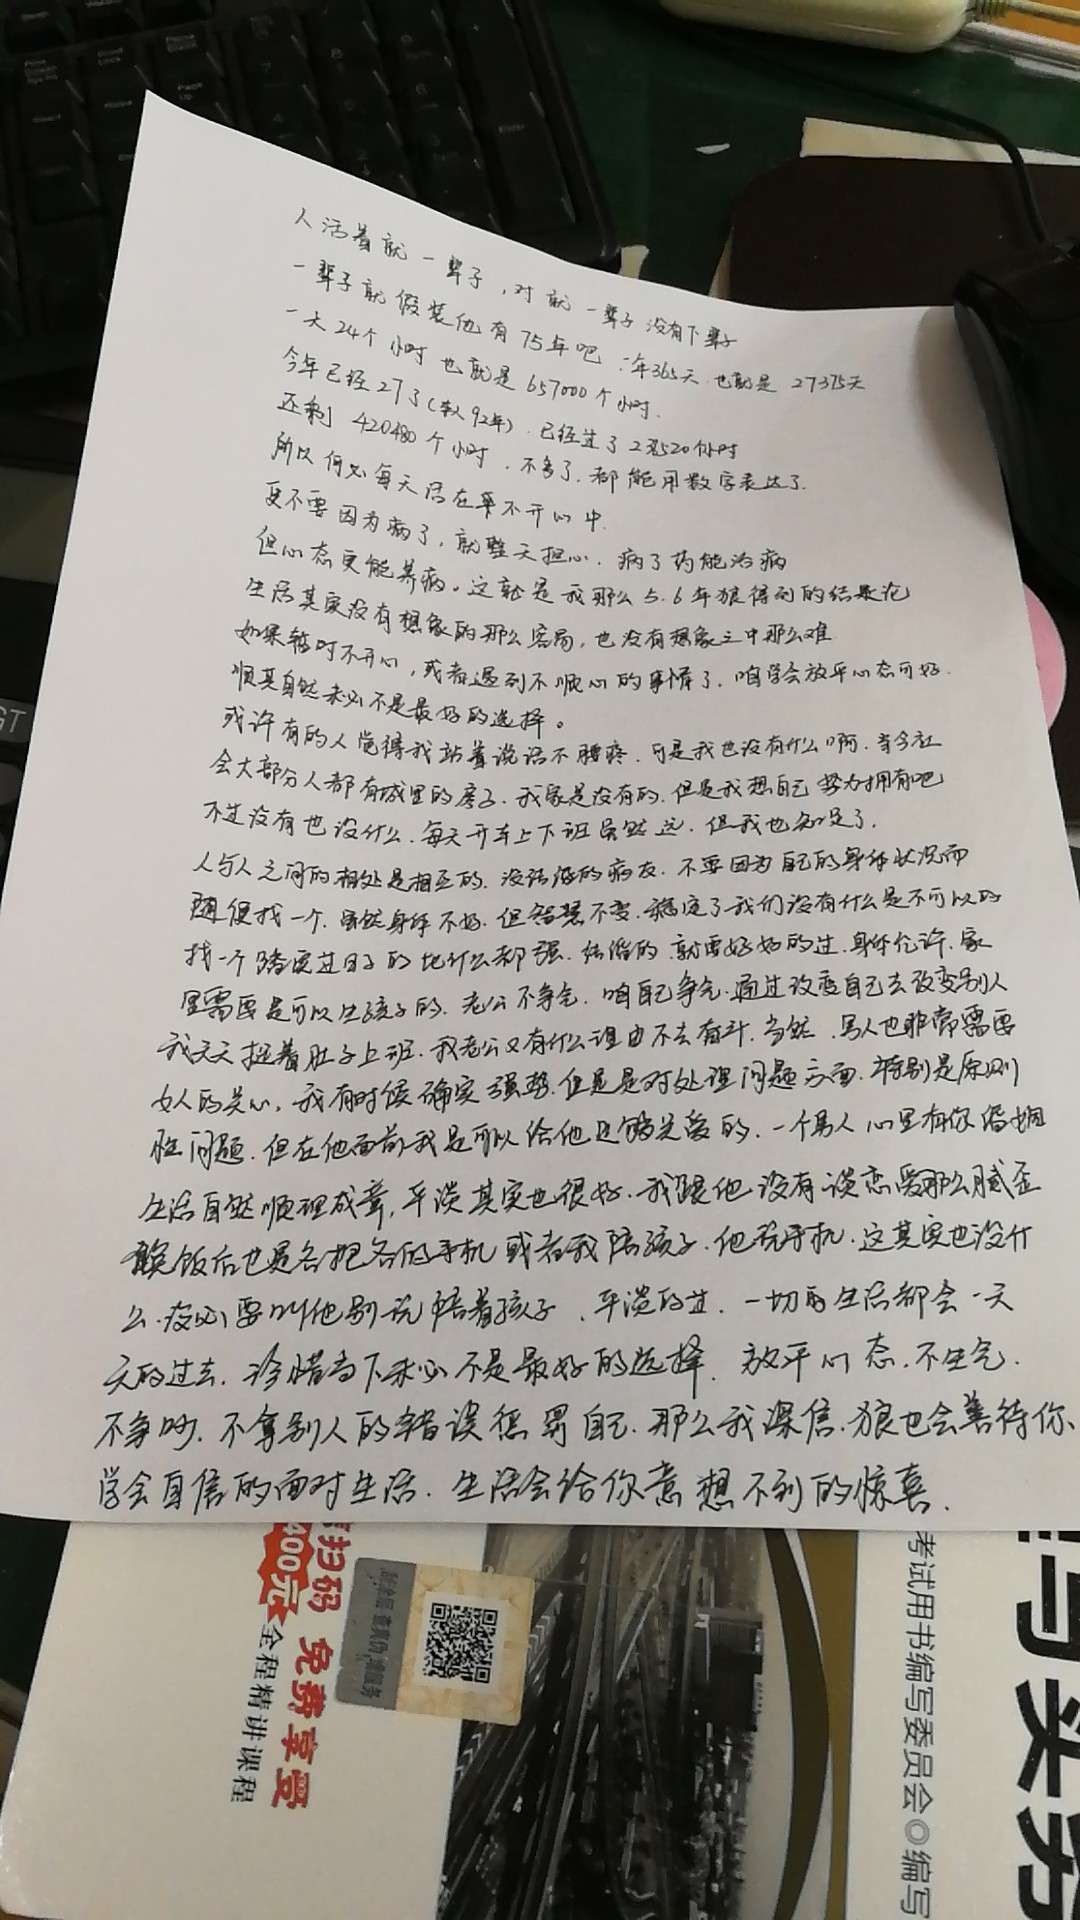 人活着就一辈子，对就一辈子没有下辈子
一辈子就假装他有75年吧 一年365天.也就是 27375天
一天24个小时也就是657000个小时.
今年已经27了(本人92年).已经过了236520个小时
还剩 420480个小时.不多了.都能用数字表达了.
所以何必每天活在不开心中.
更不要因为病了,就整天担心.病了药能治病
但心态更能养病。这就是我那么5.6年狼得到的结果论
生活其实没有想象的那么容易,也没有想象之中那么难
如果暂时不开心,或者遇到不顺心的事情了.咱学会放平心态可好.
顺其自然未必不是最好的选择。
或许有的人觉得我站着说话不腰疼.可是我也没有什么啊.当今社
会大部分人都有城里的房子.我家是没有的.但是我想自己努力拥有吧
不过没有也没什么.每天开车上下班虽然远.但我也知足了.
人与人之间的相处是相互的.没结婚的病友.不要因为自己的身体状况而
随便找一个.虽然身体不好.但智慧不变.稳定了我们没有什么是不可以的
找一个踏实过日子的比什么都强.结婚的.就要好好的过.身体允许.家
里需要是可以生孩子的.老公不争气.咱自己争气.通过改变自己去改变别人
我天天挺着肚子上班.我老公又有什么理由不去奋斗.当然.男人也非常需要
女人的关心,我有时候确实强势.但是是对处理问题方面.特别是原则
性问题.但在他面前我是可以给他足够关爱的.一个男人心里有你婚姻
生活自然顺理成章,平淡其实也很好.我跟他没有谈恋爱那么腻歪
晚饭后也是各抱各的手机或者我陪孩子.他玩手机.这其实也没什
么.没必要叫他别玩陪着孩子.平淡的过.一切的生活都会一天
天的过去.珍惜当下未必不是最好的选择.放平心态.不生气.
不争吵.不拿别人的错误惩罚自己.那么我深信.狼也会善待你、
学会自信的面对生活.生活会给你意想不到的惊喜.
扫码 免费享受
400元 全程精讲课程
考试用书编写委员会◎编写